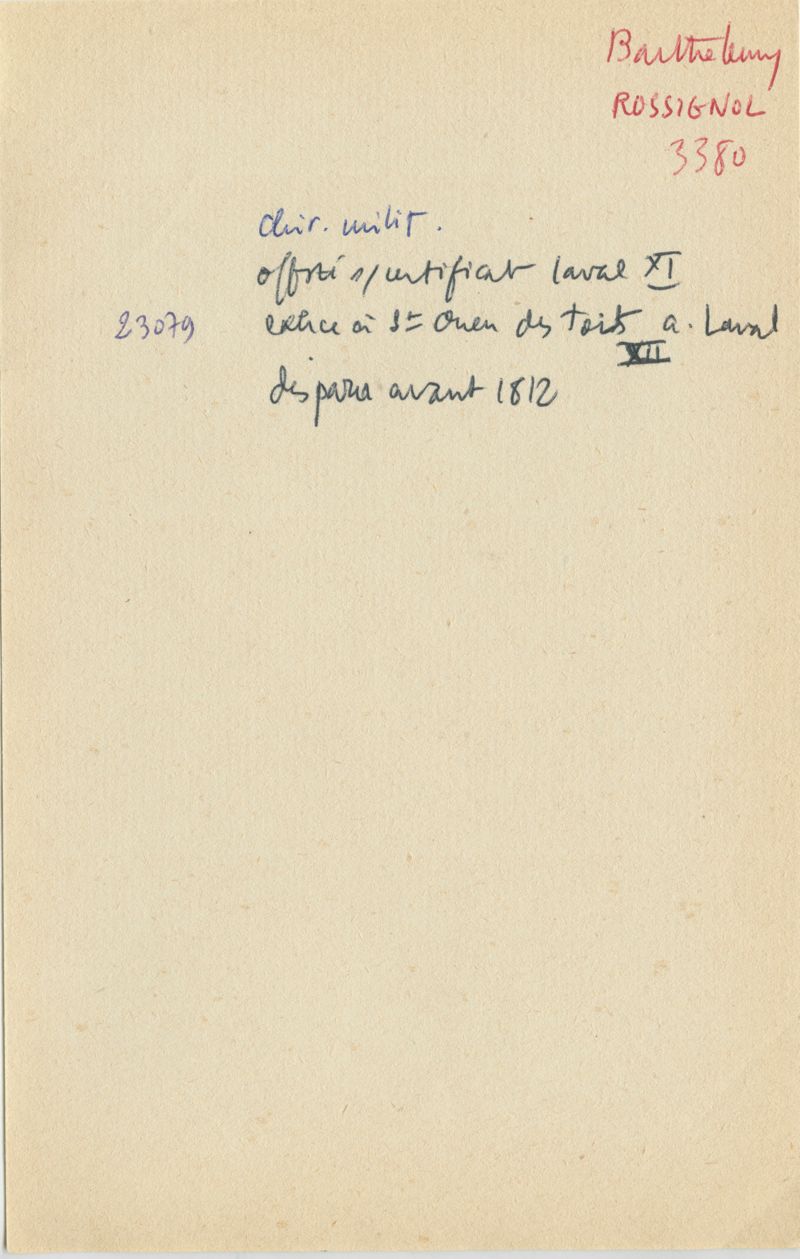 Barthelemy
ROSSIGNOL
3380
chir. milit.
s/certificat Laval XI
23079 exerce à St Ouen des Toits a. Laval
XII
disparu avant 1812